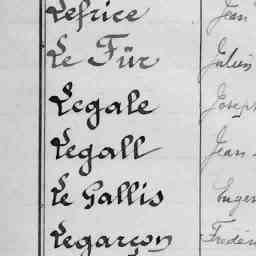 Lefrice Jean
Le Für Julien
Legale Joseph
Legall Jean
Le Gallis Eugen
Legarçon Frédér